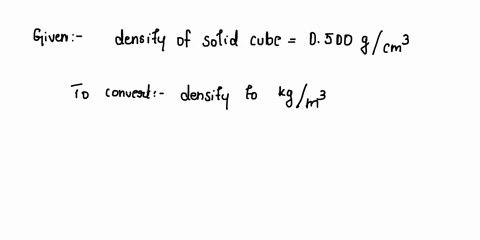 Given:- density of solid cube = 0.500 g/cm³
To convert:- density to kg/m³